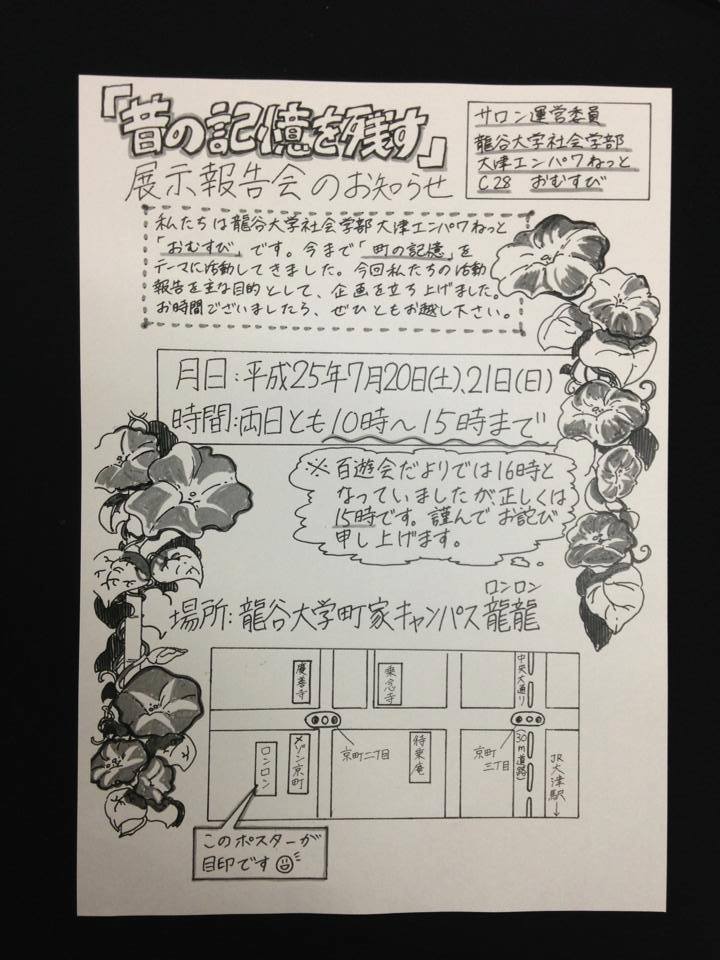 「昔の記憶を残す」
展示報告会のお知らせ
サロン運営委員
龍谷大学社会学部
大津エンパワねっと
C28 おむすび
私たちは龍谷大学社会学部大津エンパワねっと
「おむすび」です。今まで「町の記憶」を
テーマに活動してきました。今回私たちの活動
報告を主な目的として、企画を立ち上げました。
お時間ございましたら、ぜひともお越し下さい。
月日:平成25年7月20日(土)、21日(日)
時間:両日とも10時〜15時まで
※百遊会だよりでは16時と
なっていましたが正しくは
15時です。謹んでお詫び
申し上げます。
ロンロン
場所:龍谷大学町家キャンパス龍龍
慶善寺
乗念寺
中央大通り
(30m道路)
ロンロン
メゾン京町
京町二丁目
待来庵
京町
三丁目
JR大津駅→
このポスターが
目印です